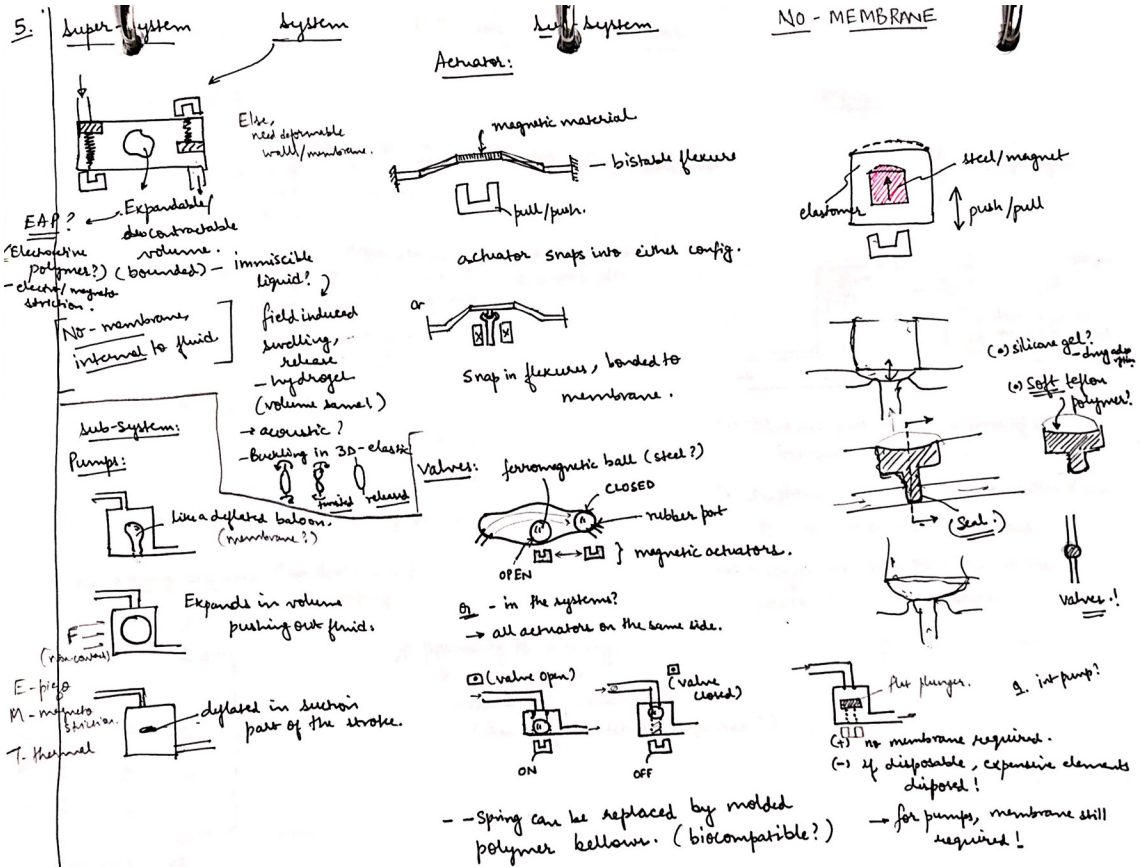 5.
Super-system
System
Sub-system
NO-MEMBRANE
Else,
need deformable
wall/membrane.
EAP?
Expandable/
volume.
(Electroactive
polymer?)
(bounded) -
- electro/magneto
striction.
immiscible
liquid?
No-membrane,
internal to fluid
field induced
swelling,
release
- hydrogel
(volume same!)
→ acoustic?
- Buckling in 3D-elastic
twisted
released
Sub-system:
Pumps:
Like a deflated baloon.
(membrane?)
Expands in volume
pushing out fluid.
F
(non-contact)
E-piezo
M-magneto
striction.
T-thermal
deflated in suction
part of the stroke.
Actuator:
magnetic material
- bistable flexure
pull/push.
actuator snaps into either config.
or
Snap in flexures, bonded to
membrane.
Valves:
ferromagnetic ball (steel?)
CLOSED
rubber port
OPEN
} magnetic actuators.
or - in the systems?
→ all actuators on the same side.
(valve open)
(valve
closed)
ON
OFF
- - Spring can be replaced by molded
polymer bellows. (biocompatible?)
steel/magnet
elastomer
push/pull
(o) silicone gel?
(o) Soft teflon
polymer?
(Seal.)
valves.!
flat plunger.
int pump?
(+) no membrane required.
(-) if disposable, expensive elements
disposed!
→ for pumps, membrane still
required!